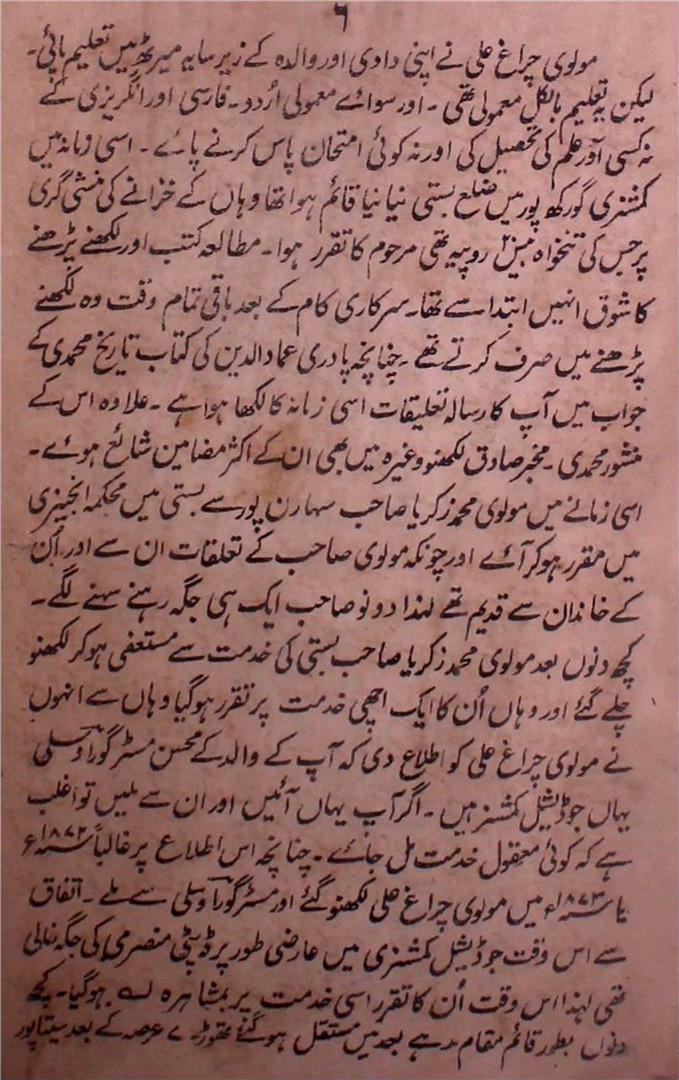 ۶
مولوی چراغ علی نے اپنی دادی اور والدہ کے زیر سایہ میرٹھ میں تعلیم پائی۔
لیکن یہ تعلیم بالکل معمولی تھی۔ اور سوائے معمولی اُردو۔ فارسی اور انگریزی کے
نہ کسی اور علم کی تحصیل کی اور نہ کوئی امتحان پاس کرنے پائے۔ اسی زمانہ میں
کمشنری گورکھ پور میں ضلع بستی نیا نیا قائم ہوا تھا وہاں کے خزانے کی منشی گری
پر جس کی تنخواہ بیس روپیہ تھی مرحوم کا تقرر ہوا۔ مطالعہ کتب اور لکھنے پڑھنے
کا شوق انہیں ابتدا سے تھا۔ سرکاری کام کے بعد باقی تمام وقت وہ لکھنے
پڑھنے میں صرف کرتے تھے۔ چنانچہ پادری عماد الدین کی کتاب تاریخ محمدی کے
جواب میں آپ کا رسالہ تعلیقات اسی زمانہ کا لکھا ہوا ہے۔ علاوہ اس کے
منشور محمدی۔ مخبر صادق لکھنو وغیرہ میں بھی ان کے اکثر مضامین شائع ہوئے۔
اسی زمانے میں مولوی محمد زکریا صاحب سہارن پور سے بستی میں محکمہ انجینری
میں مقرر ہو کر آئے اور چونکہ مولوی صاحب کے تعلقات ان سے اور اُن
کے خاندان سے قدیم تھے لہذا دونو صاحب ایک ہی جگہ رہنے سہنے لگے۔
کچھ دنوں بعد مولوی محمد زکریا صاحب بستی کی خدمت سے مستعفی ہو کر لکھنو
چلے گئے اور وہاں اُن کا ایک اچھی خدمت پر تقرر ہو گیا وہاں سے انہوں
نے مولوی چراغ علی کو اطلاع دی کہ آپ کے والد کے محسن مسٹر گور اوسلی
یہاں جوڈیشل کمشنر ہیں۔ اگر آپ یہاں آئیں اور ان سے ملیں تو اغلب
ہے کہ کوئی معقول خدمت مل جائے۔ چنانچہ اس اطلاع پر غالباً ۱۸۷۲ء
یا ۱۸۷۳ء میں مولوی چراغ علی لکھنو گئے اور مسٹر گور اوسلی سے ملے۔ اتفاق
سے اس وقت جوڈیشل کمشنری میں عارضی طور پر ڈپٹی منصرمی کی جگہ خالی
تھی لہذا اس وقت اُن کا تقرر اسی خدمت پر بمشاہرہ ہو گیا۔ کچھ
دنوں بطور قائم مقام رہے بعد میں مستقل ہو گئے تھوڑے عرصہ کے بعد سیتاپور